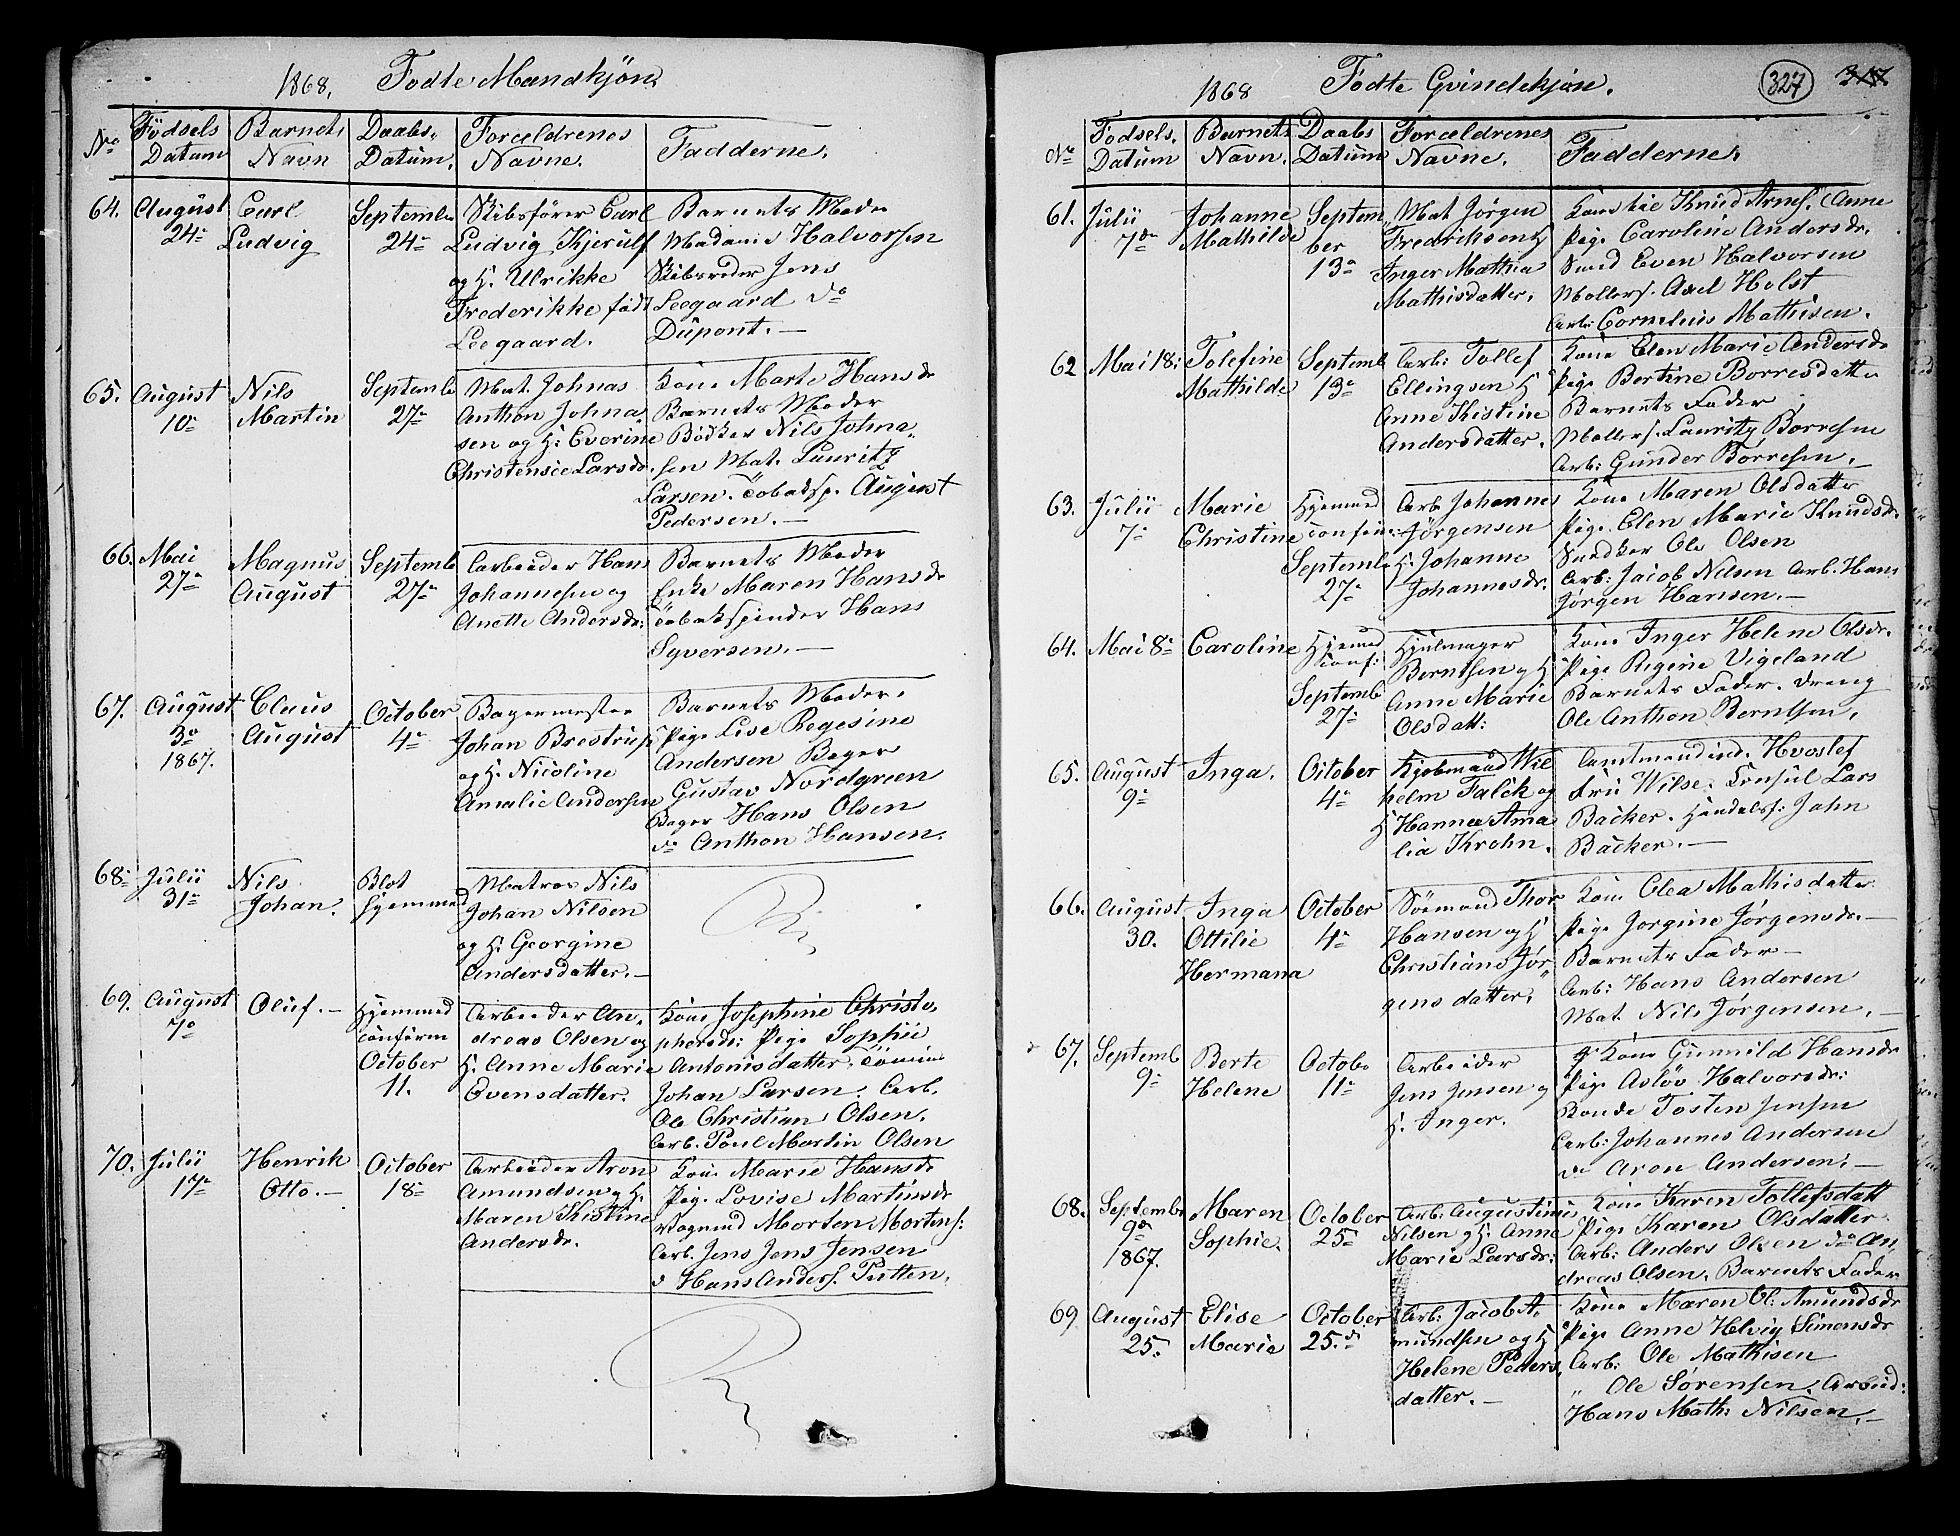 1868. Fødte Mandkjøn
No
Födsels Datum
Barnets Navn
Daabs-Datum.
Forældrenes Navne.
Fadderne.
64.
August
24de
Carl
Ludvig
Septembr
24de
Skibsfører Carl
Ludvig Kjerulf
og H. Ulrikke
Frederikke født
Leegaard.
Barnets Moder
Madame Halvorsen
Skibsreder Jens
Leegaard do
Dupont. —
65.
August
10de
Nils
Martin
Septembr
27de
Mat. Johnas
Anthon Johna
sen og H: Everine
Christensee Larsdr.
Kone Marte Hansdr
Barnets Moder
Bödker Nils Johna
sen Mat. Lauritz
Larsen. Tobaksp. August
Pedersen. —
66.
Mai
27de
Magnus
August
Septemb
27de
Arbeider Hans
Johannesen og
Anette Andersdr:
Barnets Moder
Enke Maren Hansdr
Tobakspinder Hans
Syversen. —
67.
August
3de
1867.
Claus
August
October
4de
Bagermester
Johan Brestrup
og H. Nicoline
Amalie Andersen
Barnets Moder.
Pige Lise Regesine
Andersen Bager
Gustav Nordgreen
Bager Hans Olsen
do Anthon Hansen.
68.
Julii
31te
Nils
Johan.
Blot
hjemmed
Matros Nils
Johan Nilsen
og H. Georgine
Andersdatter. —
69.
August
7de
Oluf. —
Hjemmed
confirm
October
11.
Arbeider An-
dreas Olsen og
H. Anne Marie
Evensdatter.
Kone Josephine Christo-
phersdr: Pige Sophie
Antonisdatter.
Johan Larsen. Arb.
Ole Christian Olsen.
Arb. Poul Martin Olsen
70.
Julii
17de
Henrik
Otto. —
October
18de
Arbeider Aron
Amundsen og H.
Maren Kistine
Andersdr.
Kone Marie Hansdr
Pige Lovise Martinsdr
Vognmd Morten Mortens:
Arb. Jens Jens Jensen
do Hans Anders. Putten.
1868 Fødte Qvindekjøn.
327
317.
No
Fødsels. Datum
Barnets Navn.
Daabs Datum
Forældrenes Navne.
Fadderne.
61.
Julii
7de
Johanne
Mathilde
Septem
ber
13de
Mat Jörgen
Fredriksen H
Inger Mathea
Mathisdatter.
Knud Arnes. Anne
Pige Caroline Andersdr.
Svend Even Halvorsen
Mollers. Axel Holst
Arb: Cornelius Mathisen.
62
Mai 18:
Tolefine
Mathilde
Septemb
13de
Arb: Tollef
Ellingsen H
Anne Kistine
Andersdatter.
Kone Elen Marie Andersdr
Pige Bertine Borresdatter
Barnets Fader
Mollers. Lauritz Borresen
Arb: Gunder Börresen. —
63.
Julii
7de
Marie
Christine
Hjemmed
confirm
Septemb
27de
Arb Johannes
Jörgensen
H. Johanne
Johannesdr.
Kone Maren Olsdatter
Pige Elen Marie Knudsdr.
Snedker Ole Olsen
Arb: Jacob Nilsen Arb. Hans
Jørgen Hansen. —
64.
Mai 8de
Caroline
Hjemmed
conf:
Septemb
27de
Hjulmager
Berntsen og H
Anne Marie
Olsdatt:
Kone Inger Helene Olsdr.
Pige Regine Vigeland
Barnets Fader. Dreng
Ole Anthon Berntsen.
65.
August
9de
Inga.
October
4de
Kjøbmand Wil
helm Falck og
H Hannea Ama
lia Krohn.
Amtmandinde Hvoslef
Fru Wilse. Consul Lars
Backer. Handelsf: Jahn
Backer. —
66.
August
30.
Inga
Ottilie
Hermana
October
4de
Sømand Thor
Hansen og H
Christiane Jør
gensdatter.
Kone Olea Mathisdatter
Pige Jorgine Jørgensdr. —
Barnets Fader —
Arb: Hans Andersen
Mat. Nils Jørgensen. —
67.
Septemb
9de
Berte
Helene
Octobr
11te
Arbeider
Jens Jensen og
H. Inger.
Kone Gunnild Hansdr
Pige Asløv Halvorsdr:
Bonde Tosten Jensen
Arb: Johannes Andersen
do Aron Andersen. —
68.
Septembr
9de
1867.
Maren
Sophie.
October
25de
Arb: Augustinus
Nilsen og H. Anne
Marie Larsdr:
Kone Karen Tollefsdatt
Pige Karen Olsdatter
Arb: Anders Olsen do An-
dreas Olsen. Barnets Fader
69
August
25.
Elise
Marie
October
25.de
Arb: Jacob A-
mundsen og H
Helene Peders-
datter. —
Kone Maren Ol: Amundsdr
Pige Anne Helvig Simonsdr
Arb: Ole Mathisen
„ Ole Sørensen. Arbeid:
Hans Math: Nilsen. —